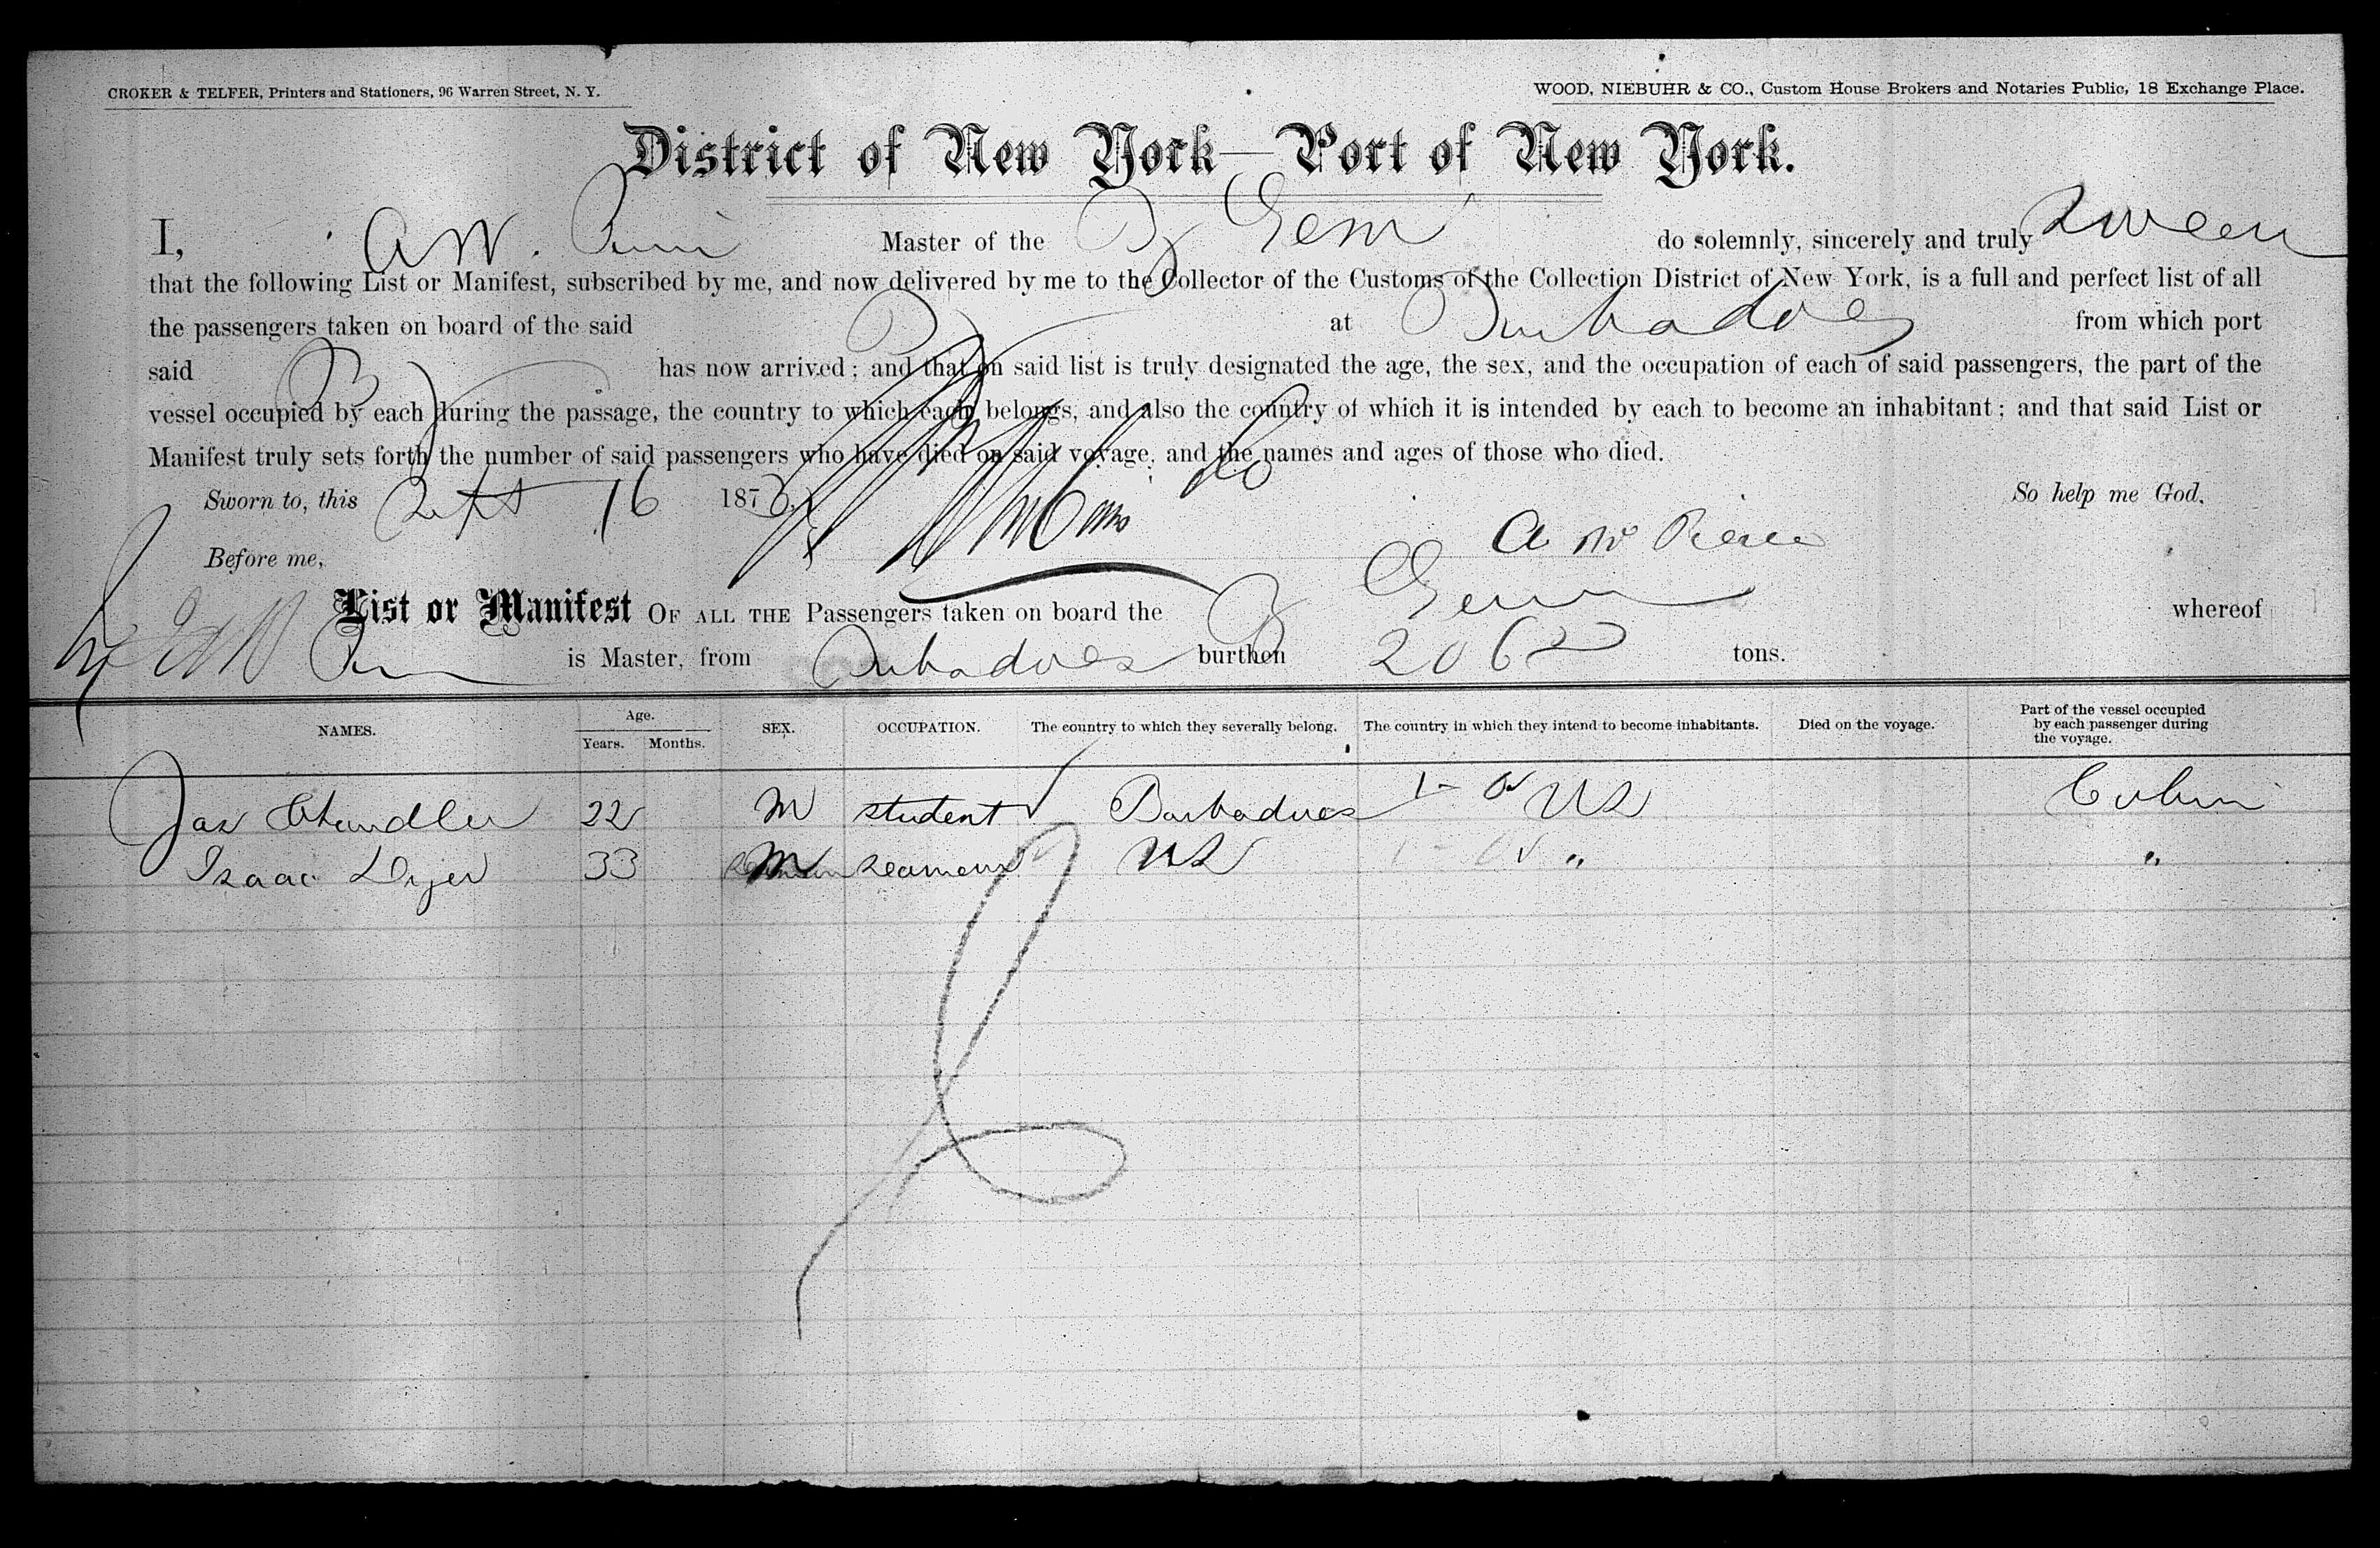 CROKER & TELFER, Printers and Stationers, 96 Warren Street, N. Y.
WOOD, NIEBUHR & CO., Custom House Brokers and Notaries Public, 18 Exchange Place.
District of New York—Port of New York.
I, A W. Master of the B Gem do solemnly, sincerely and truly swear
that the following List or Manifest, subscribed by me, and now delivered by me to the Collector of the Customs of the Collection District of New York, is a full and perfect list of all
the passengers taken on board of the said B at Barbadoes from which port
said B has now arrived; and that on said list is truly designated the age, the sex, and the occupation of each of said passengers, the part of the
vessel occupied by each during the passage, the country to which each belongs, and also the country of which it is intended by each to become an inhabitant; and that said List or
Manifest truly sets forth the number of said passengers who have died on said voyage, and the names and ages of those who died.
Sworn to, this Sept 16 1878 So help me God.
A W Pierce
Before me,
List or Manifest OF ALL THE Passengers taken on board the B Gem whereof
A W is Master, from Barbadoes burthen 206 tons.
NAMES. Age. Years. Months. SEX. OCCUPATION. The country to which they severally belong. The country in which they intend to become inhabitants. Died on the voyage. Part of the vessel occupied by each passenger during the voyage.
Jas Chandler 22 M student Barbadoes US Cabin
Isaac Dyer 33 M seaman US " "